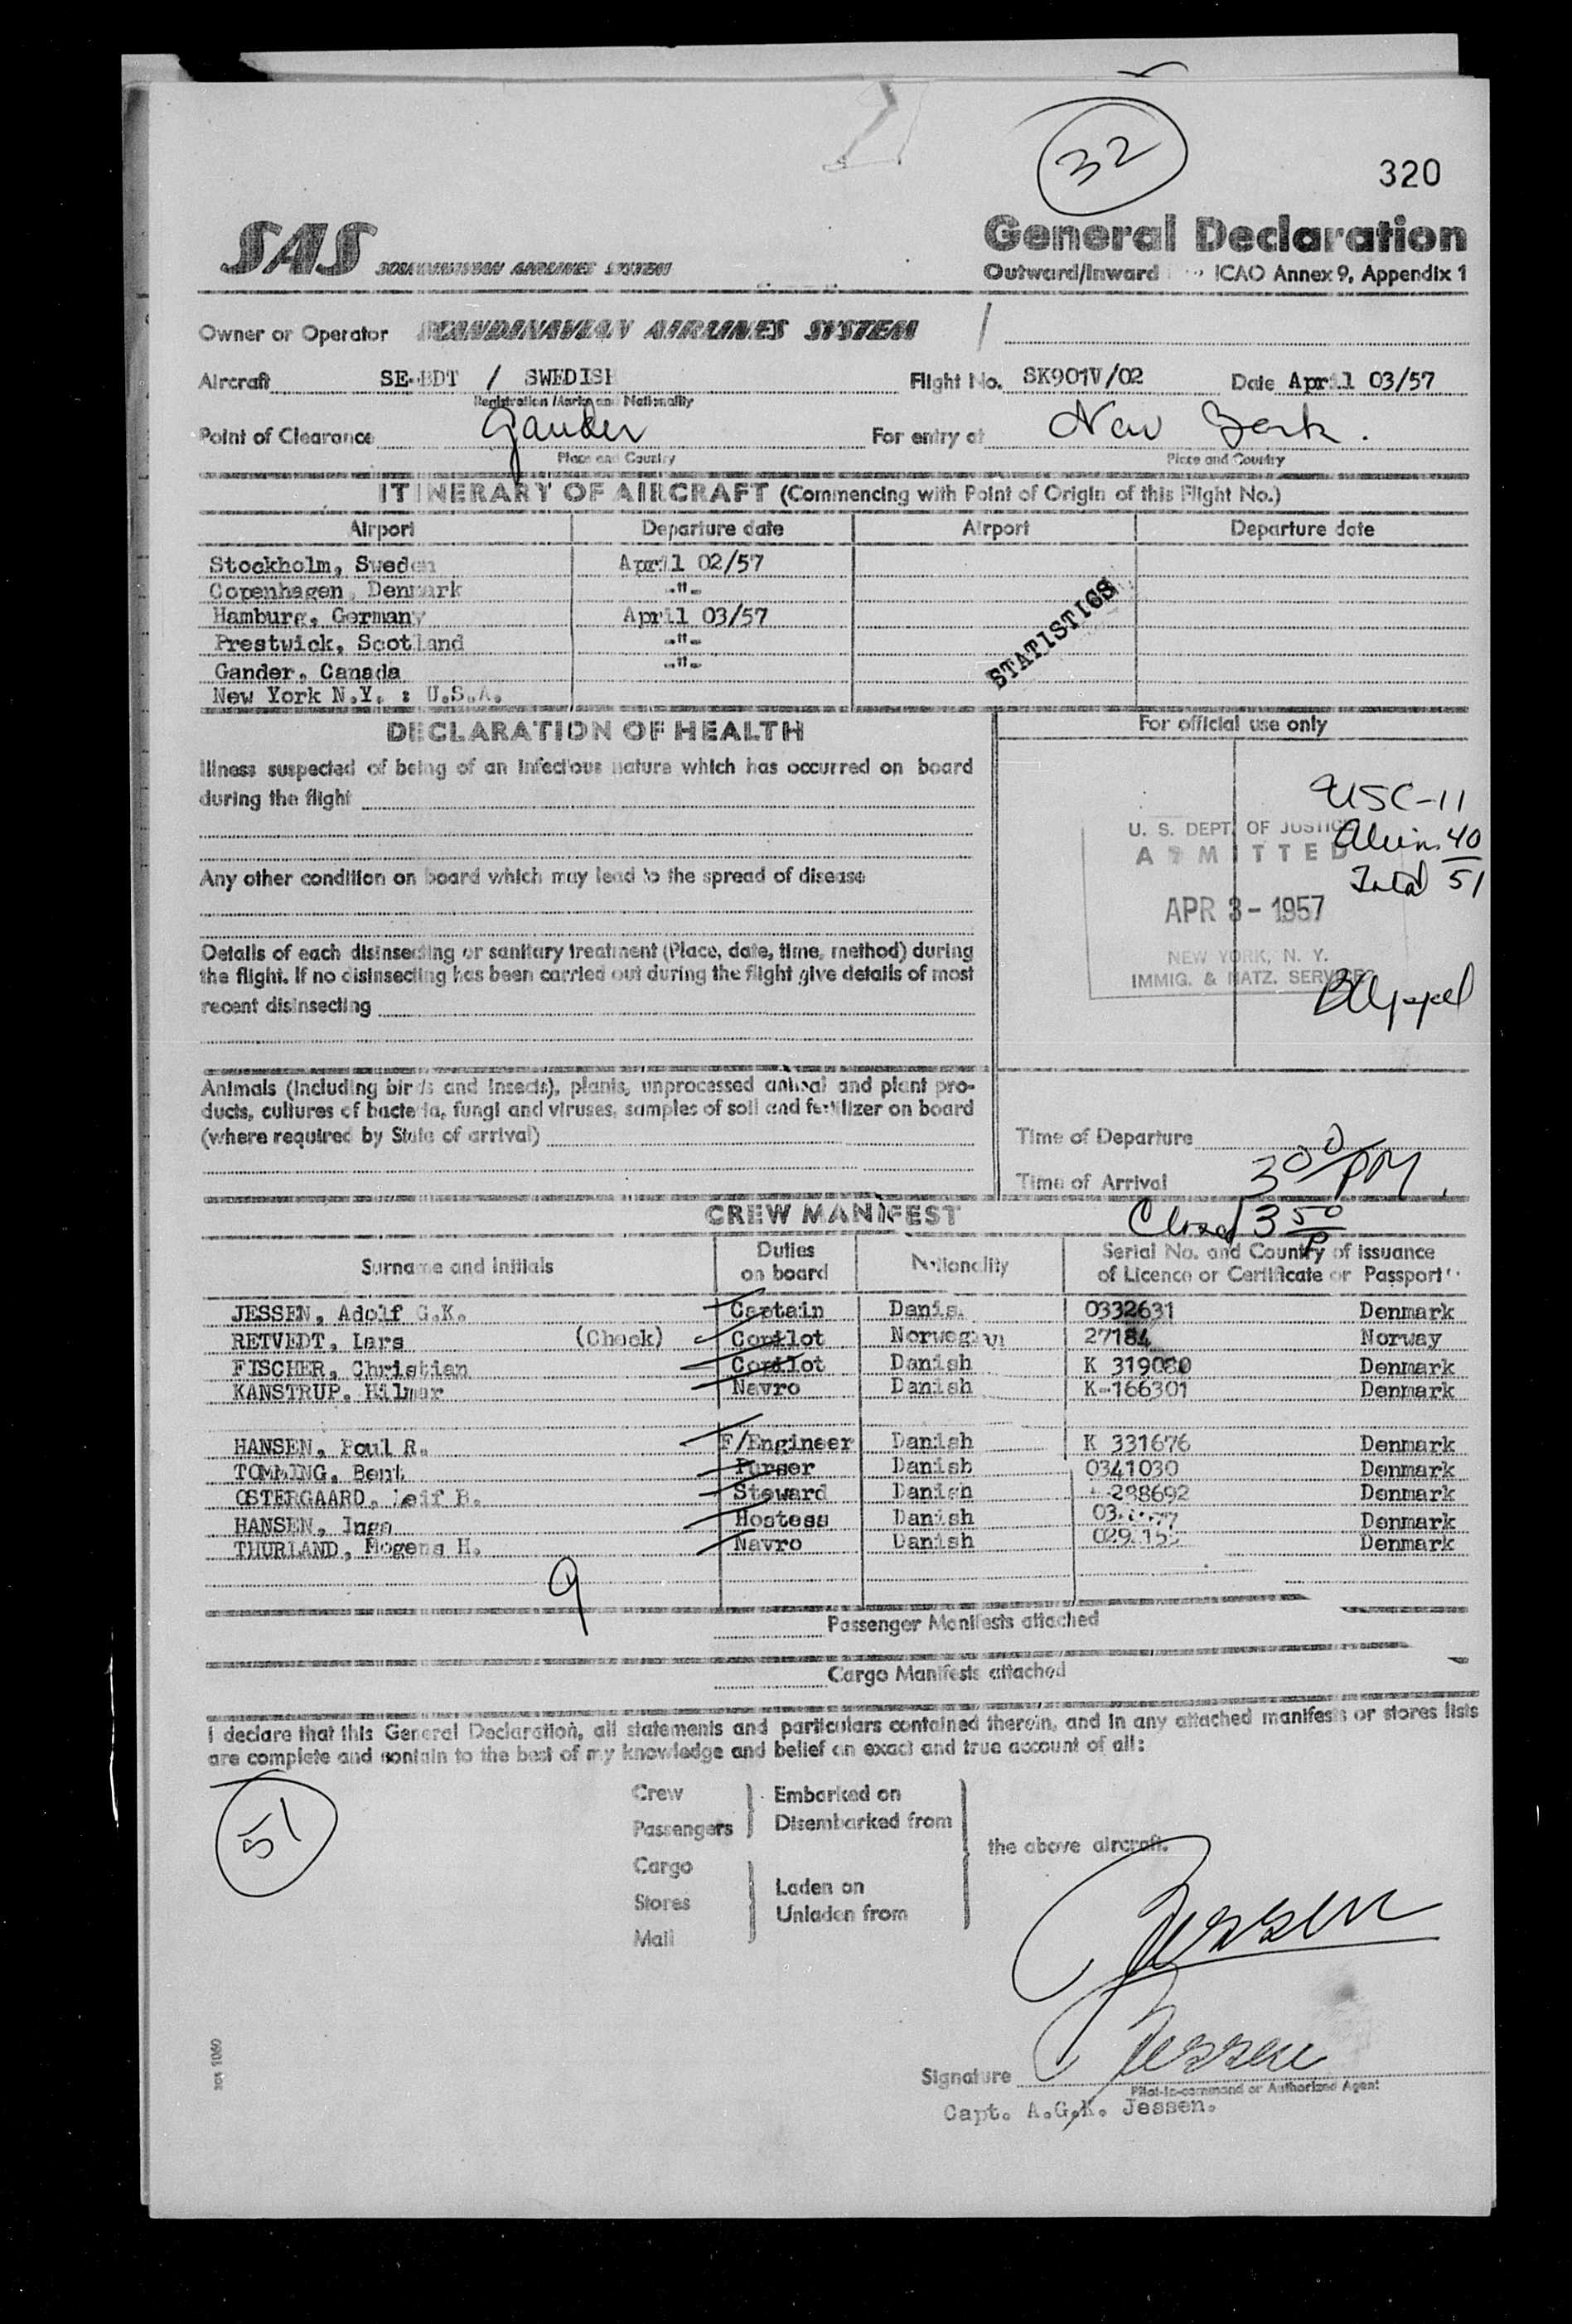 32
320
SAS SCANDINAVIAN AIRLINES SYSTEM
General Declaration
Outward/Inward ICAO Annex 9, Appendix 1
Owner or Operator SCANDINAVIAN AIRLINES SYSTEM
Aircraft SE-BDT / SWEDISH Flight No. SK901V/02 Date April 03/57
Registration Marks and Nationality
Point of Clearance Gander For entry at New York.
Place and Country Place and Country
ITINERARY OF AIRCRAFT (Commencing with Point of Origin of this Flight No.)
Airport Departure date Airport Departure date
Stockholm, Sweden April 02/57
Copenhagen, Denmark -"-
Hamburg, Germany April 03/57
Prestwick, Scotland -"-
Gander, Canada -"-
New York N.Y. : U.S.A.
STATISTICS
DECLARATION OF HEALTH
For official use only
Illness suspected of being of an infectious nature which has occurred on board
during the flight
USC-11
Alien. 40
Total 51
U. S. DEPT. OF JUSTICE
ADMITTED
APR 3 - 1957
NEW YORK, N. Y.
IMMIG. & NATZ. SERVICE
Any other condition on board which may lead to the spread of disease
Details of each disinsecting or sanitary treatment (Place, date, time, method) during
the flight. If no disinsecting has been carried out during the flight give details of most
recent disinsecting
Animals (including birds and insects), plants, unprocessed animal and plant pro-
ducts, cultures of bacteria, fungi and viruses, samples of soil and fertilizer on board
(where required by State of arrival)
Time of Departure
Time of Arrival 3 00/PM.
CREW MANIFEST
Closed 3 50 P
Surname and initials Duties on board Nationality Serial No. and Country of issuance of Licence or Certificate or Passport
JESSEN, Adolf G.K. Captain Danis. 0332631 Denmark
RETVEDT, Lars (Check) Copilot Norwegian 27184 Norway
FISCHER, Christian Copilot Danish K 319080 Denmark
KANSTRUP, Hilmar Navro Danish K-166301 Denmark
HANSEN, Poul R. F/Engineer Danish K 331676 Denmark
TOMMING, Bent Purser Danish 0341030 Denmark
OSTERGAARD, Leif B. Steward Danish 288692 Denmark
HANSEN, Inge Hostess Danish Denmark
THURLAND, Mogens H. Navro Danish Denmark
9
Passenger Manifests attached
Cargo Manifests attached
I declare that this General Declaration, all statements and particulars contained therein, and in any attached manifests or stores lists
are complete and contain to the best of my knowledge and belief an exact and true account of all:
51
Crew
Passengers
Embarked on
Disembarked from
the above aircraft.
Cargo
Stores
Mail
Laden on
Unladen from
Jessen
Signature Jessen
Pilot-in-command or Authorized Agent
Capt. A.G.K. Jessen.